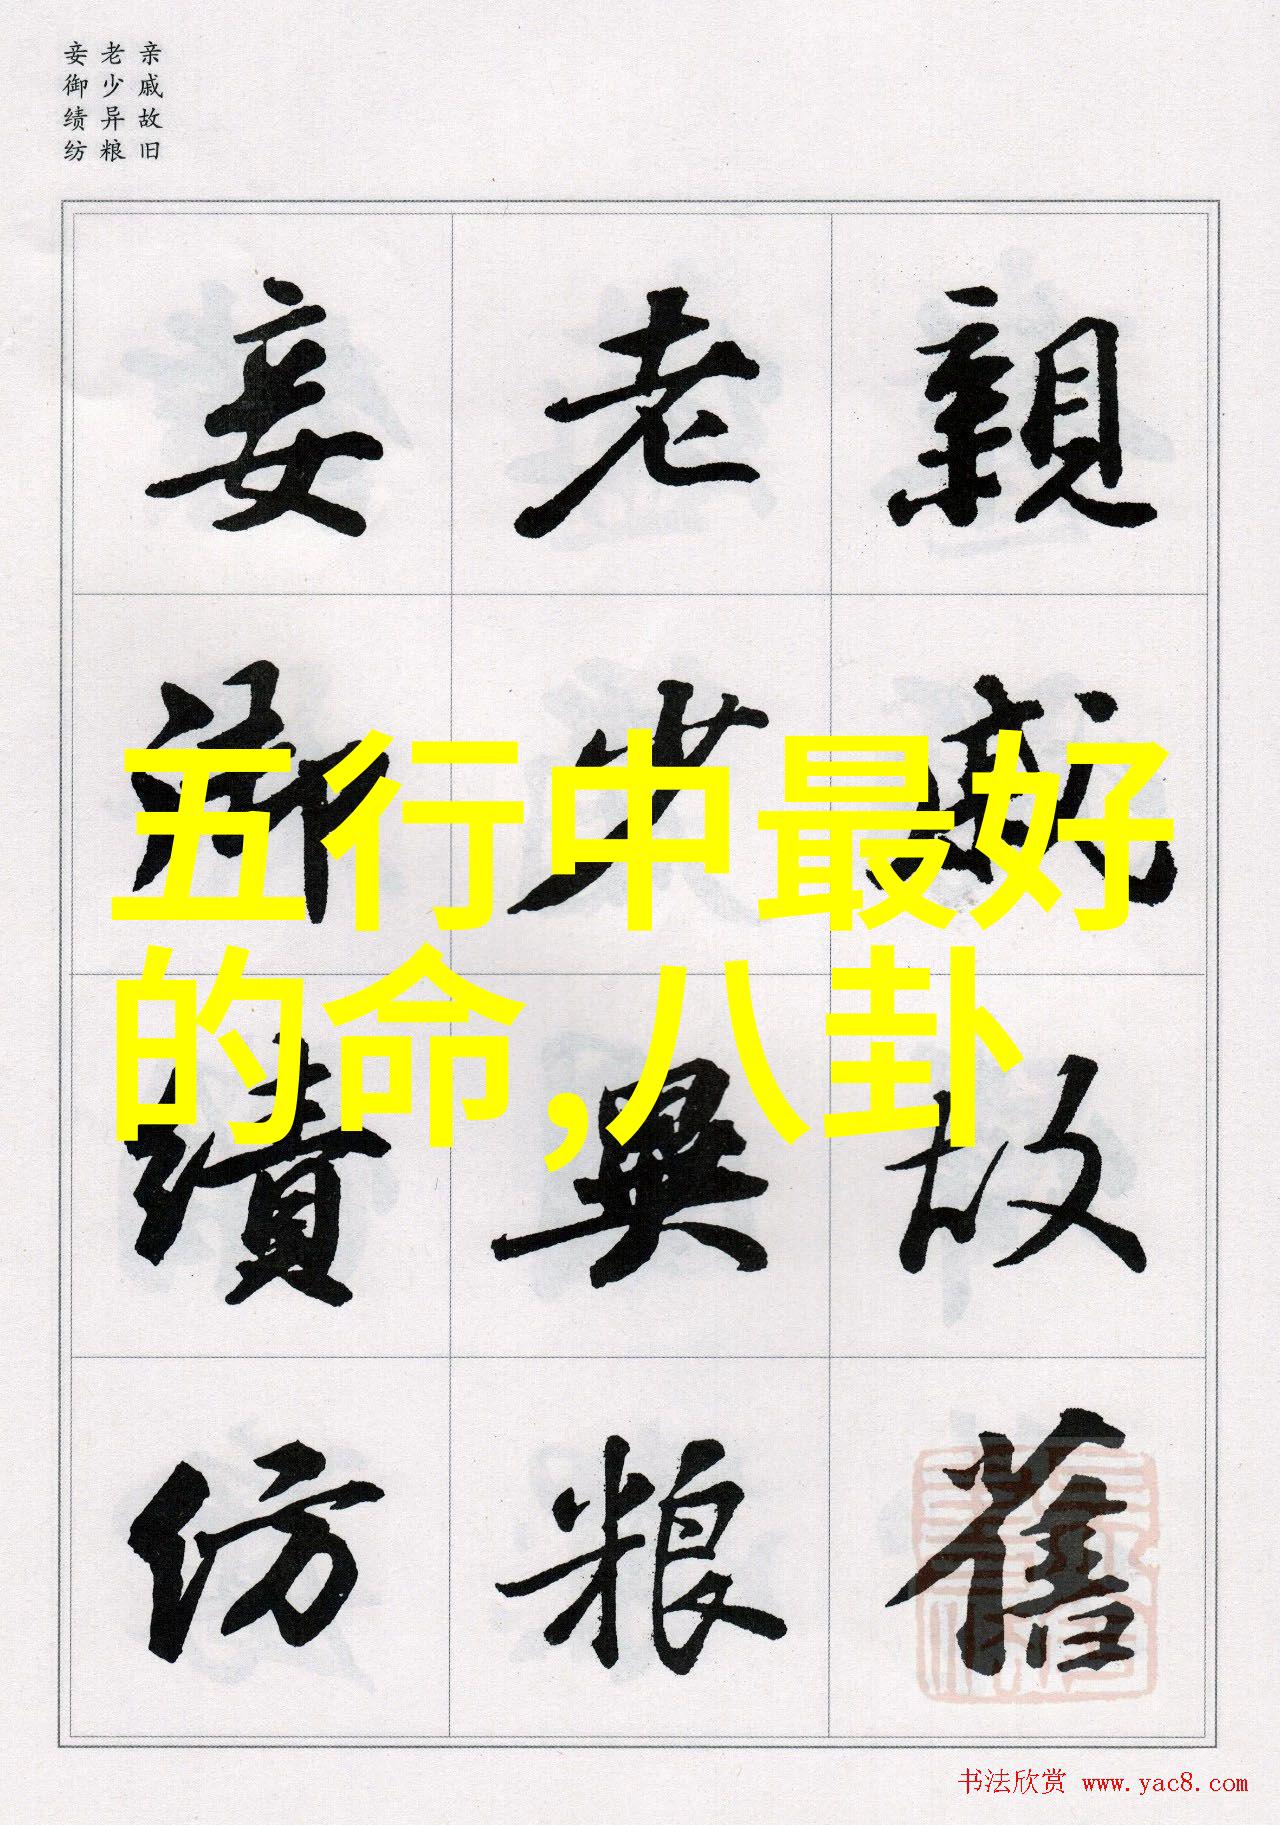 亲戚故旧
老少异粮
妾御绩纺
親戚故舊
老少異粮
妾御績紡
五行中最好
的命,八卦
书法欣赏 www.yac8.com